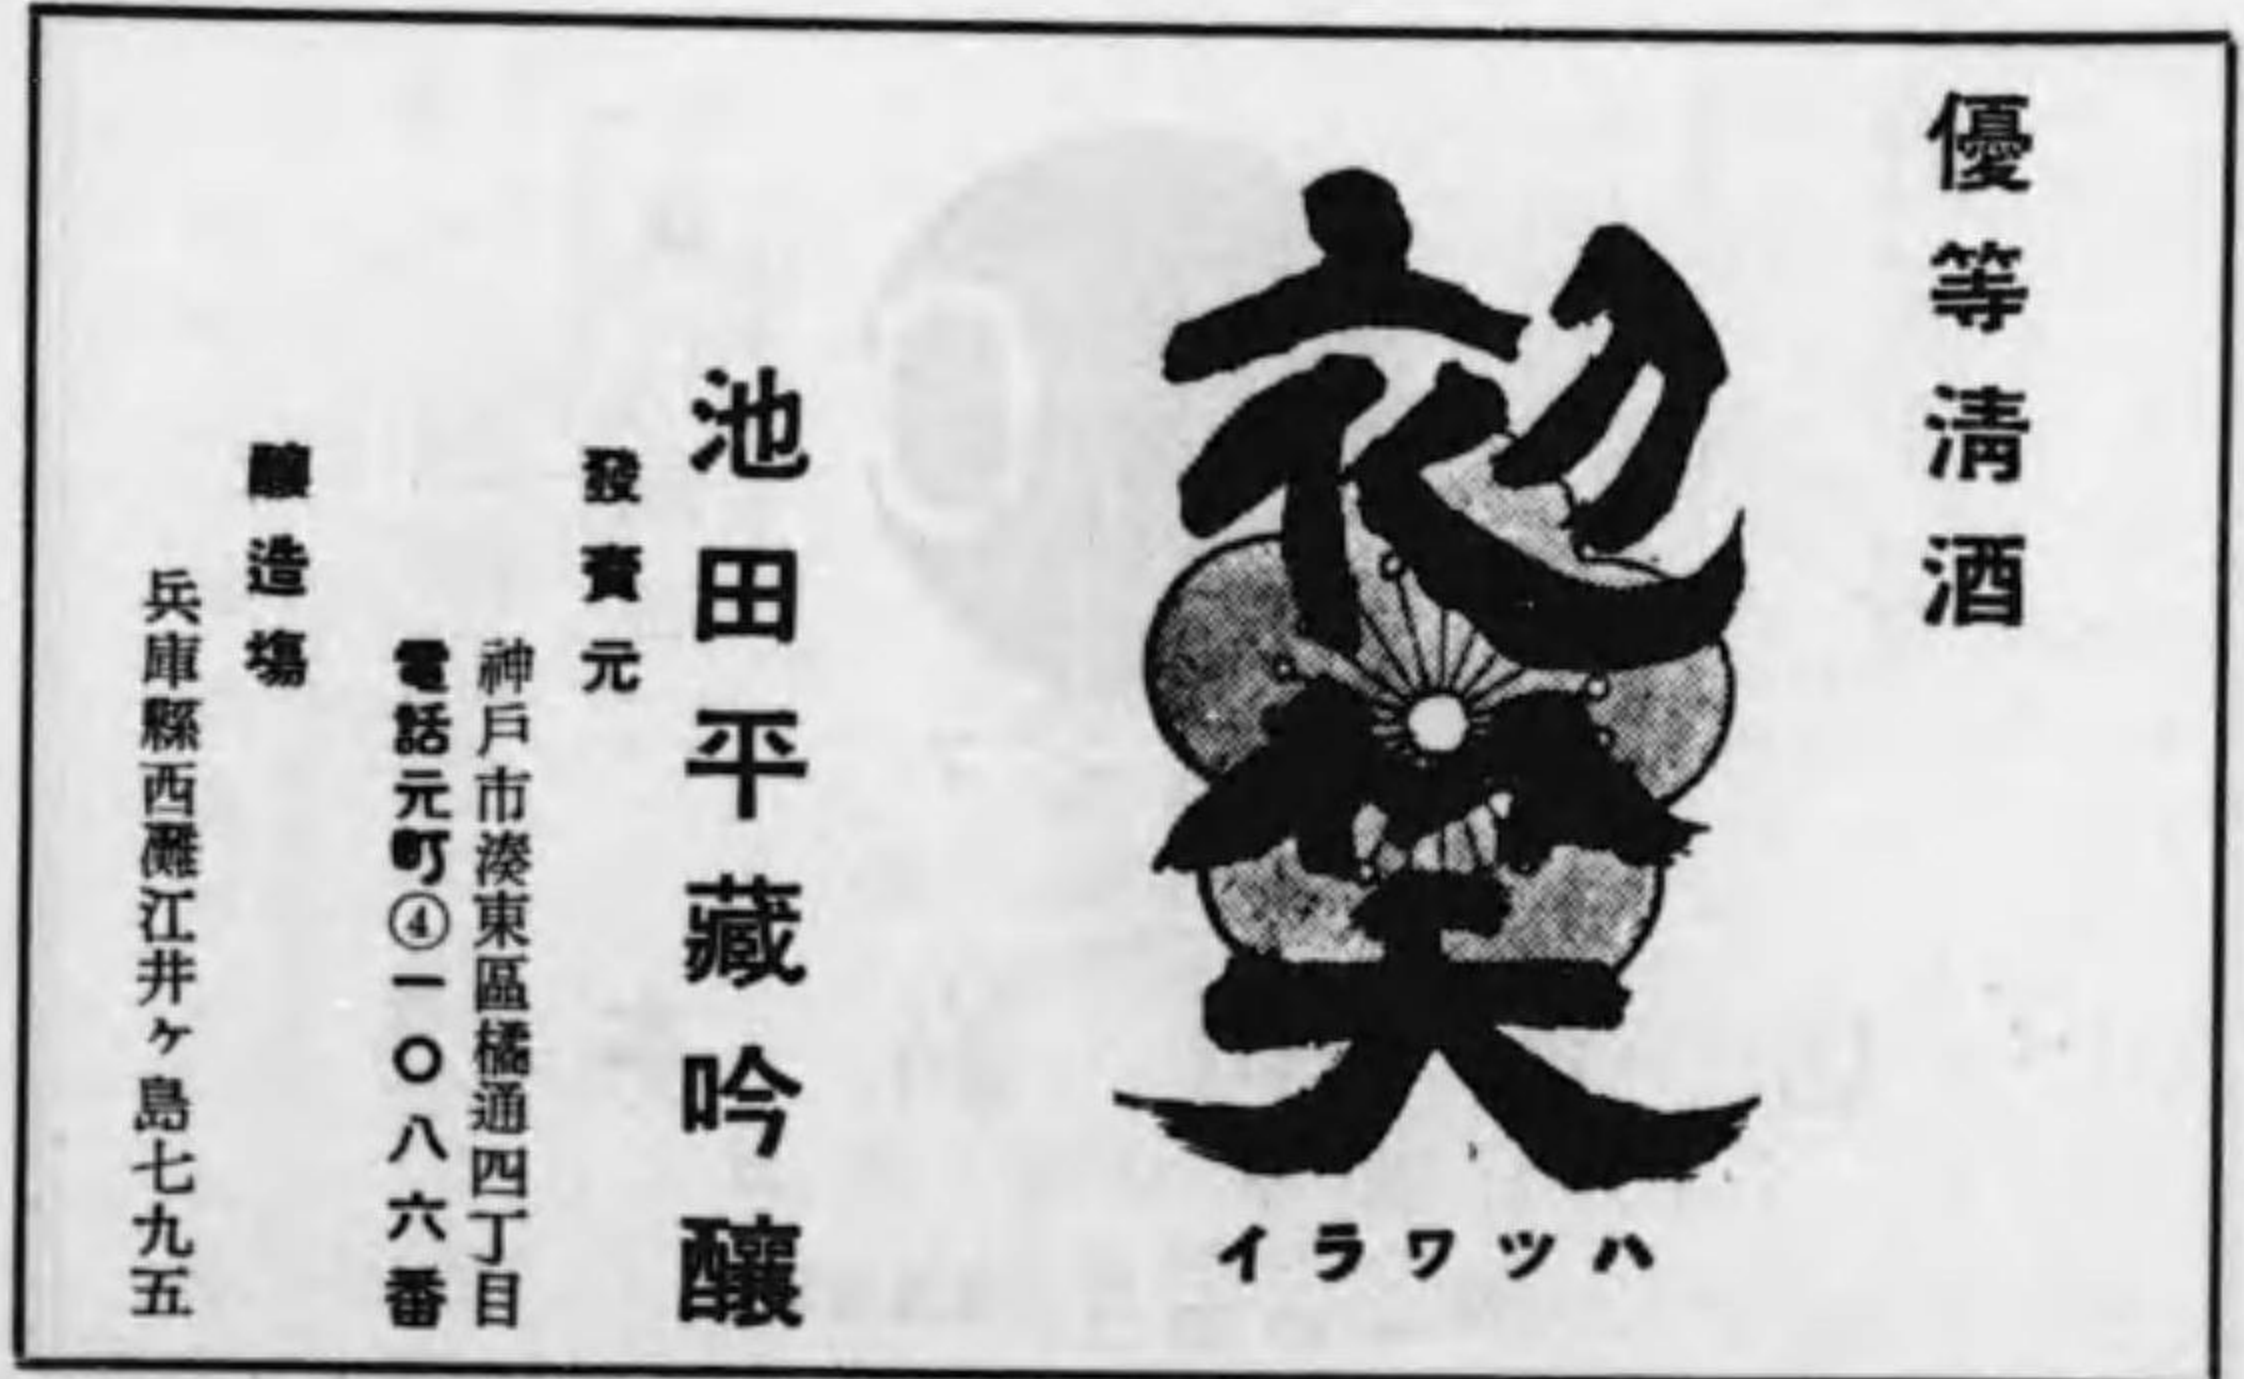 優等清酒
初笑
ハツワライ
池田平藏吟釀
發賣元
神戶市湊東區橘通四丁目
電話元町④一〇八六番
釀造塲
兵庫縣西灘江井ヶ島七九五